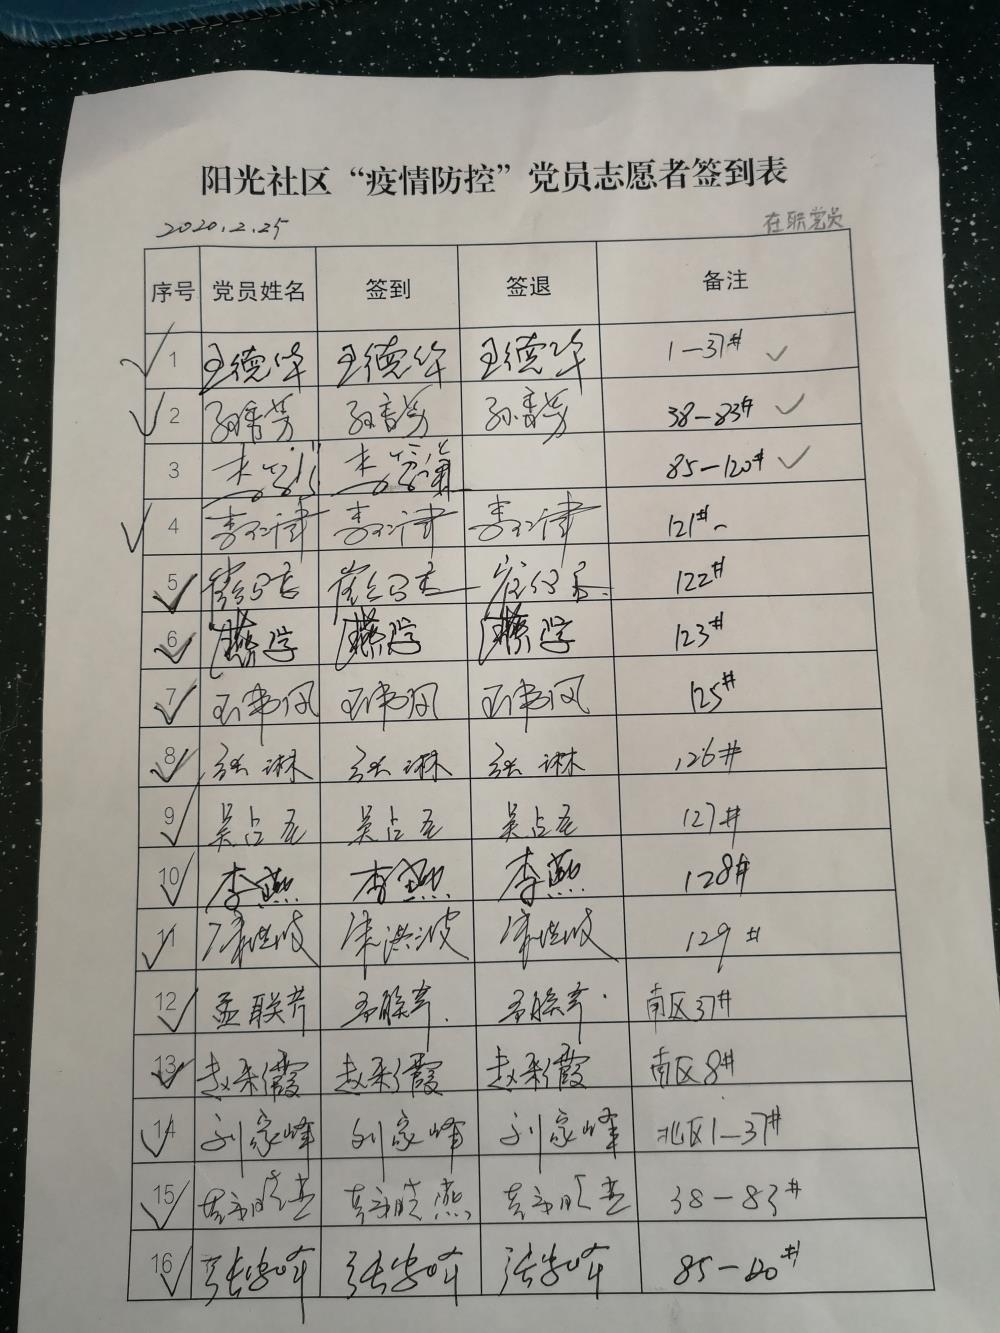 阳光社区“疫情防控”党员志愿者签到表
2020.2.25
在职党员
序号 党员姓名 签到 签退 备注
1 王德华 王德华 王德华 1-37#
2 孙秀芳 孙秀芳 孙秀芳 38-83#
3 85-120#
4 李仁津 李仁津 李仁津 121#
5 122#
6 123#
7 125#
8 张琳 张琳 张琳 126#
9 127#
10 李燕 李燕 李燕 128#
11 宋洪波 宋洪波 宋洪波 129#
12 孟联芹 孟联芹 孟联芹 南区37#
13 赵彩霞 赵彩霞 赵彩霞 南区8#
14 刘家峰 刘家峰 刘家峰 北区1-37#
15 38-83#
16 85-120#